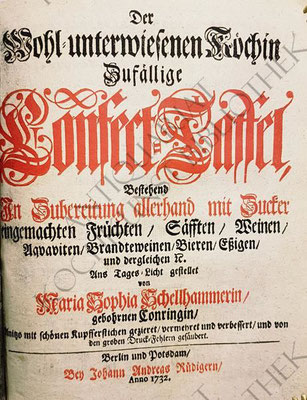 Der
Wohl-unterwiesenen Köchin
Zufällige
Confect-Taffel,
Bestehend
In Zubereitung allerhand mit Zucker
eingemachten Früchten / Säfften / Weinen /
Aqvaviten / Brandteweinen / Bieren / Eßigen /
und dergleichen ꝛc.
Ans Tages-Licht gestellet
von
Maria Sophia Schellhammerin /
gebohrnen Conringin /
Anitzo mit schönen Kupfferstichen gezieret / vermehret und verbessert / und von
den groben Druck-Fehlern gesäubert.
Berlin und Potsdam /
Bey Johann Andreas Rüdigern /
Anno 1732.